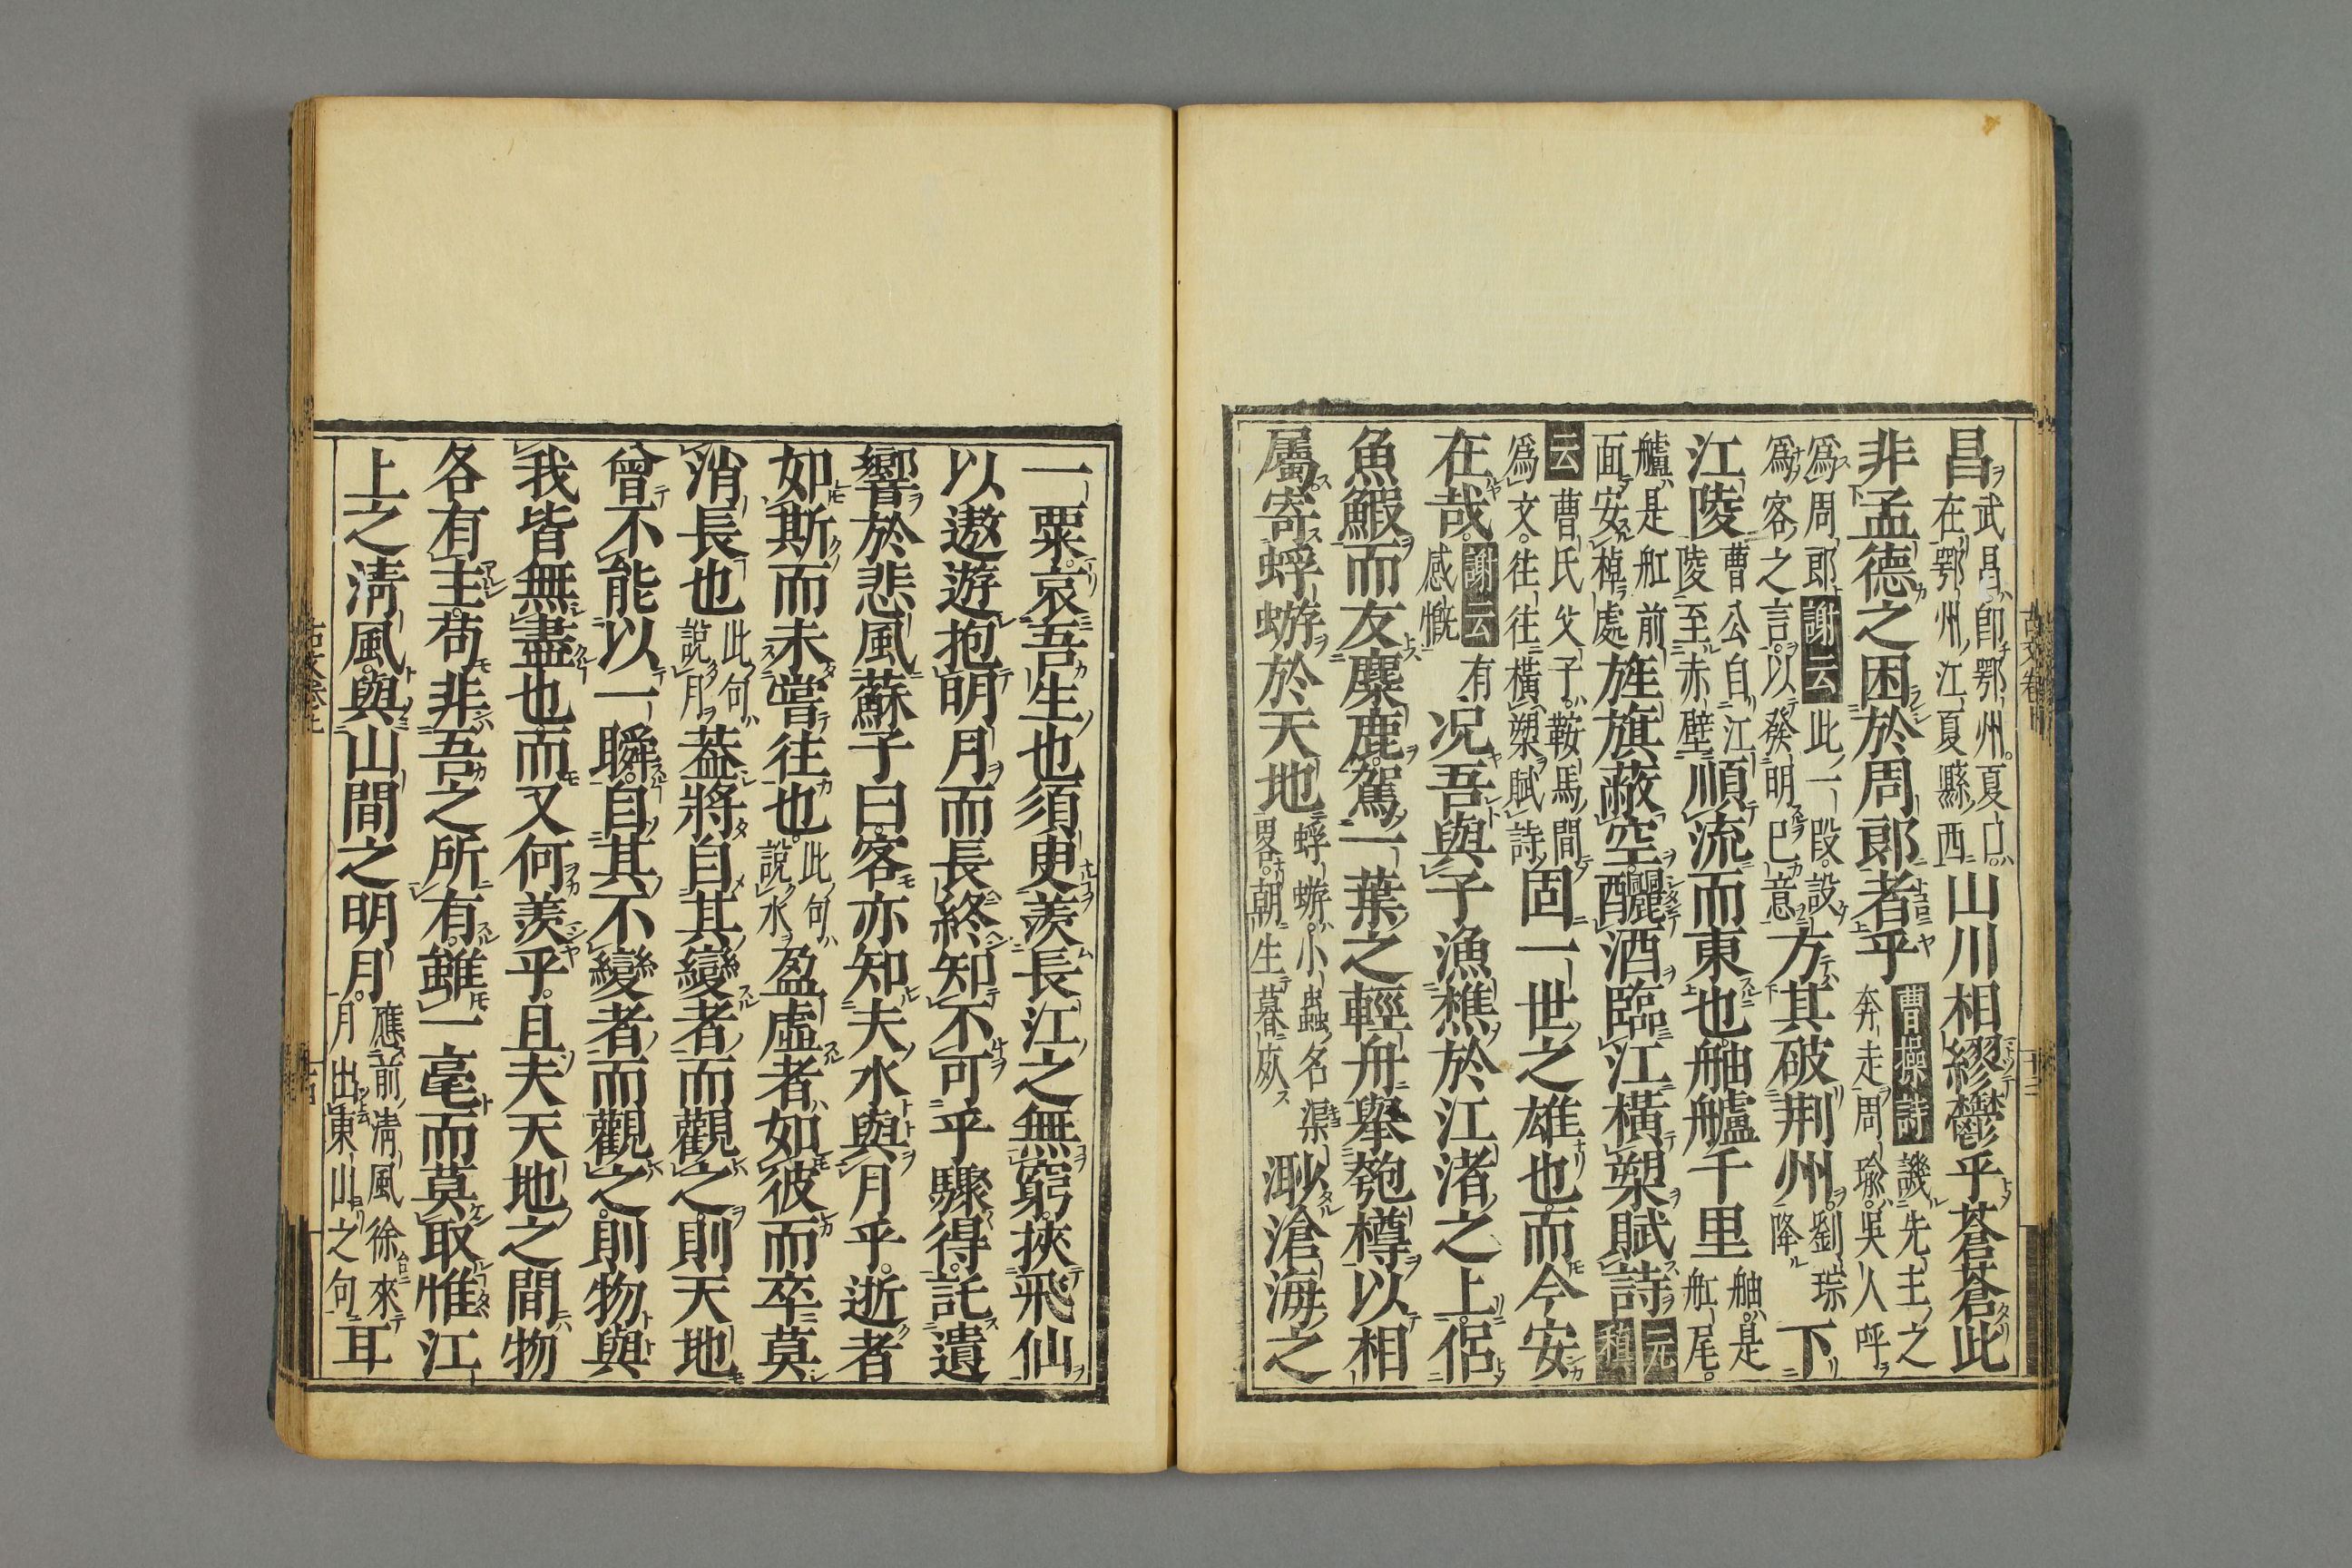 昌武昌即鄂州夏口在鄂州江夏縣西山川相繆鬱乎蒼蒼此
非孟德之困於周郎者乎曹操詩譏先主之奔走周瑜吳人呼
爲周郎謝云此一段設爲客之言以發明巳意方其破荆州劉琮降下
江陵曹公自江陵至赤壁順流而東也舳艫千里舳是舡尾
艫是舡前面安棹處旌旗蔽空釃酒臨江橫槊賦詩元稹
云曹氏父子鞍馬間爲文往往橫槊賦詩固一世之雄也而今安
在哉謝云有感慨况吾與子漁樵於江渚之上侶
魚鰕而友麋鹿駕一葉之輕舟擧匏樽以相
屬寄蜉蝣於天地蜉蝣小蟲名渠畧朝生暮死渺滄海之
一粟哀吾生也須臾羨長江之無窮挾飛仙
以遨遊抱明月而長終知不可乎驟得託遺
響於悲風蘇子曰客亦知夫水與月乎逝者
如斯而未嘗往也此句說水盈虛者如彼而卒莫
消長也此句說月葢將自其變者而觀之則天地
曾不能以一瞬自其不變者而觀之則物與
我皆無盡也而又何羨乎且夫天地之間物
各有主苟非吾之所有雖一毫而莫取惟江
上之淸風與山間之明月應前淸風徐來月出東山之句耳